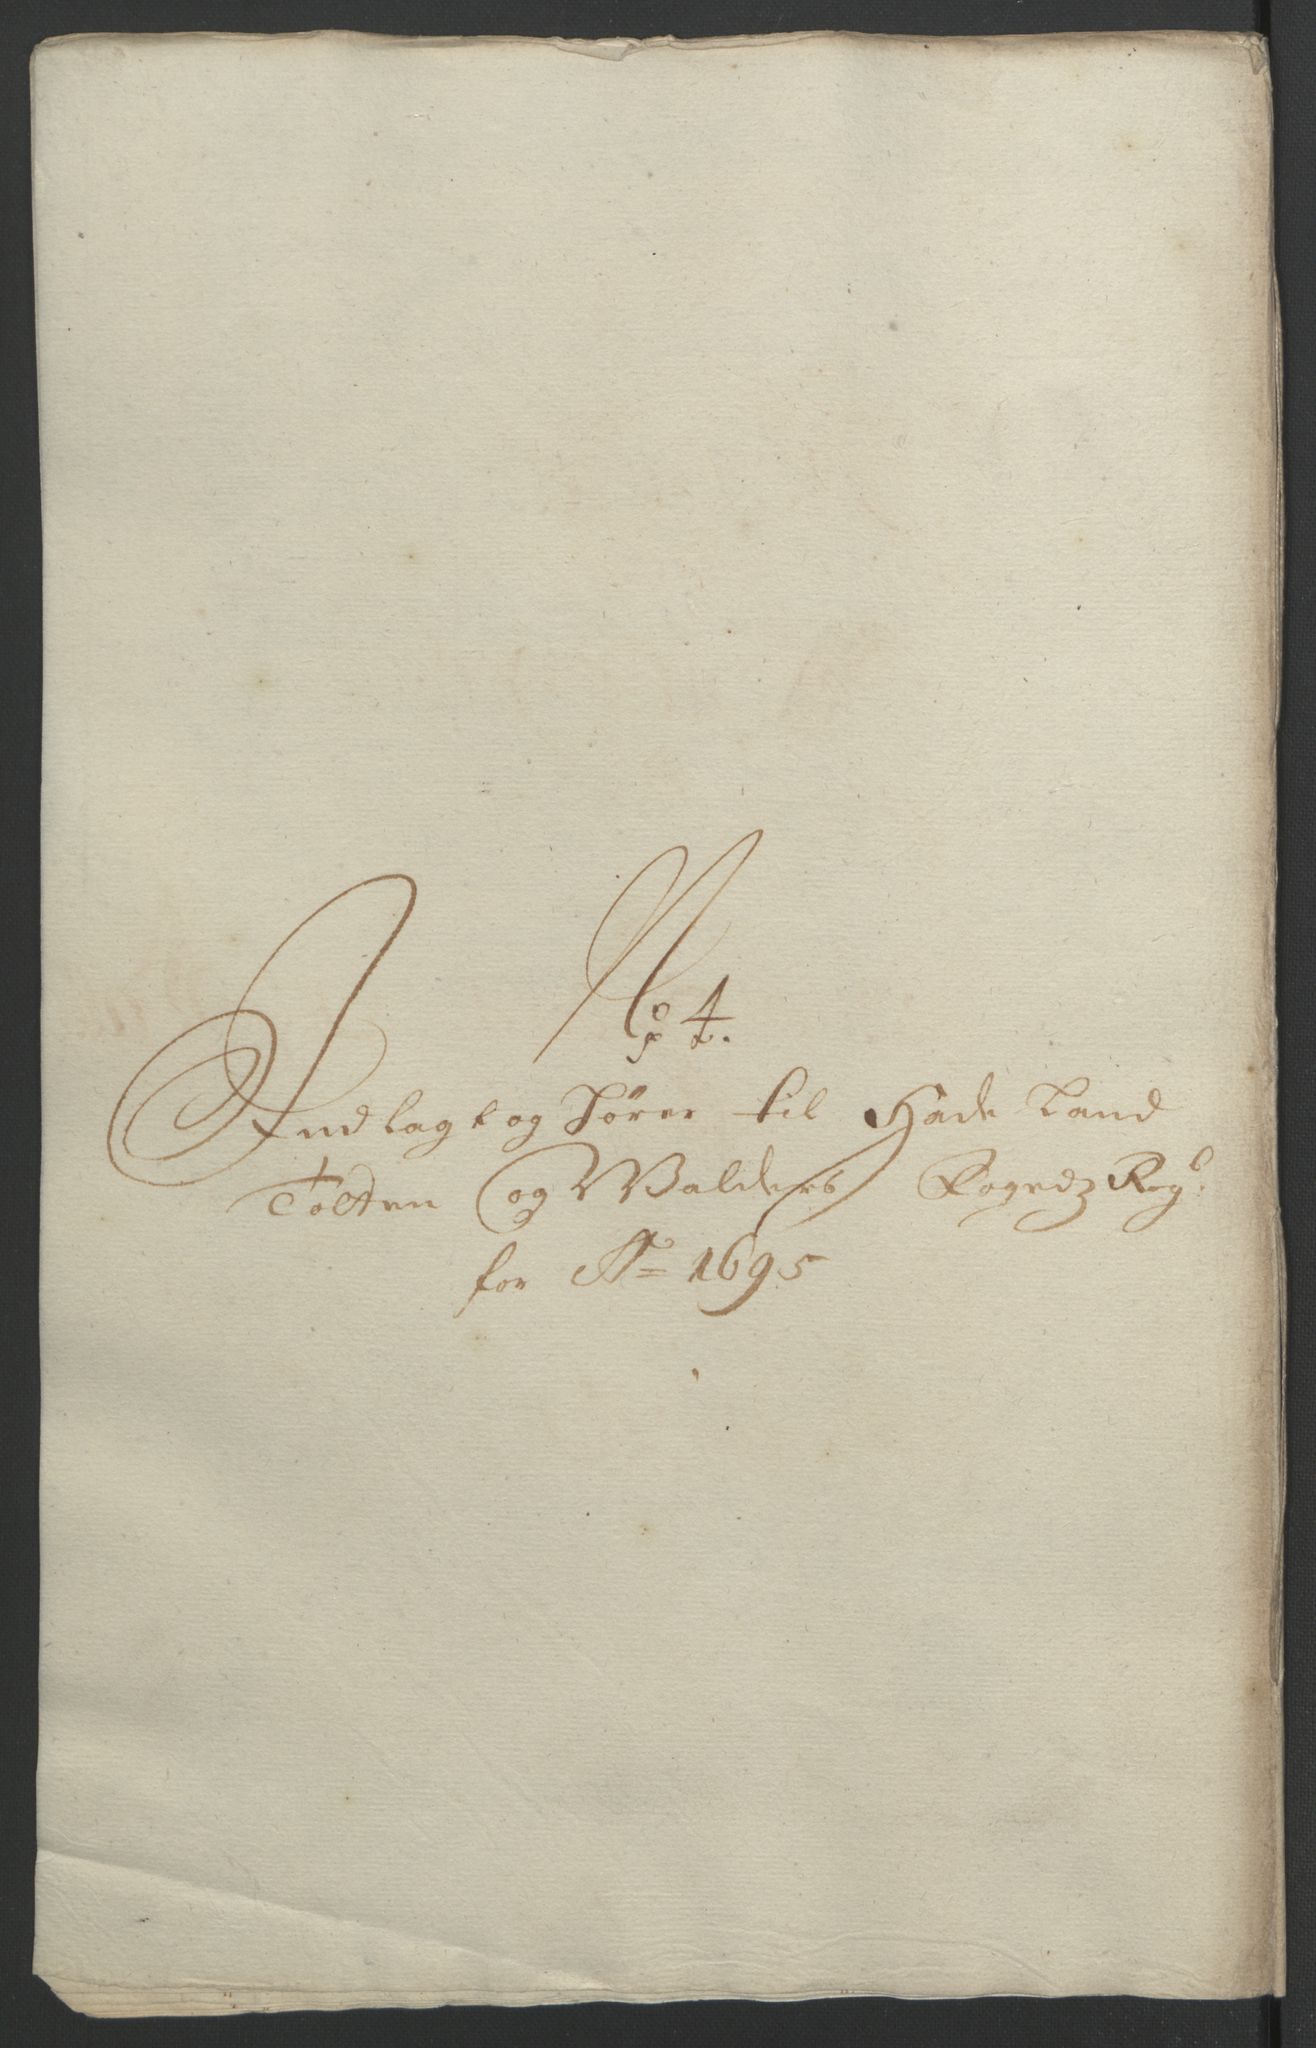 No 4.
Indlagt og Hører til Hade Land
Totten og Walders Fogedz Reg:
for Ao 1695